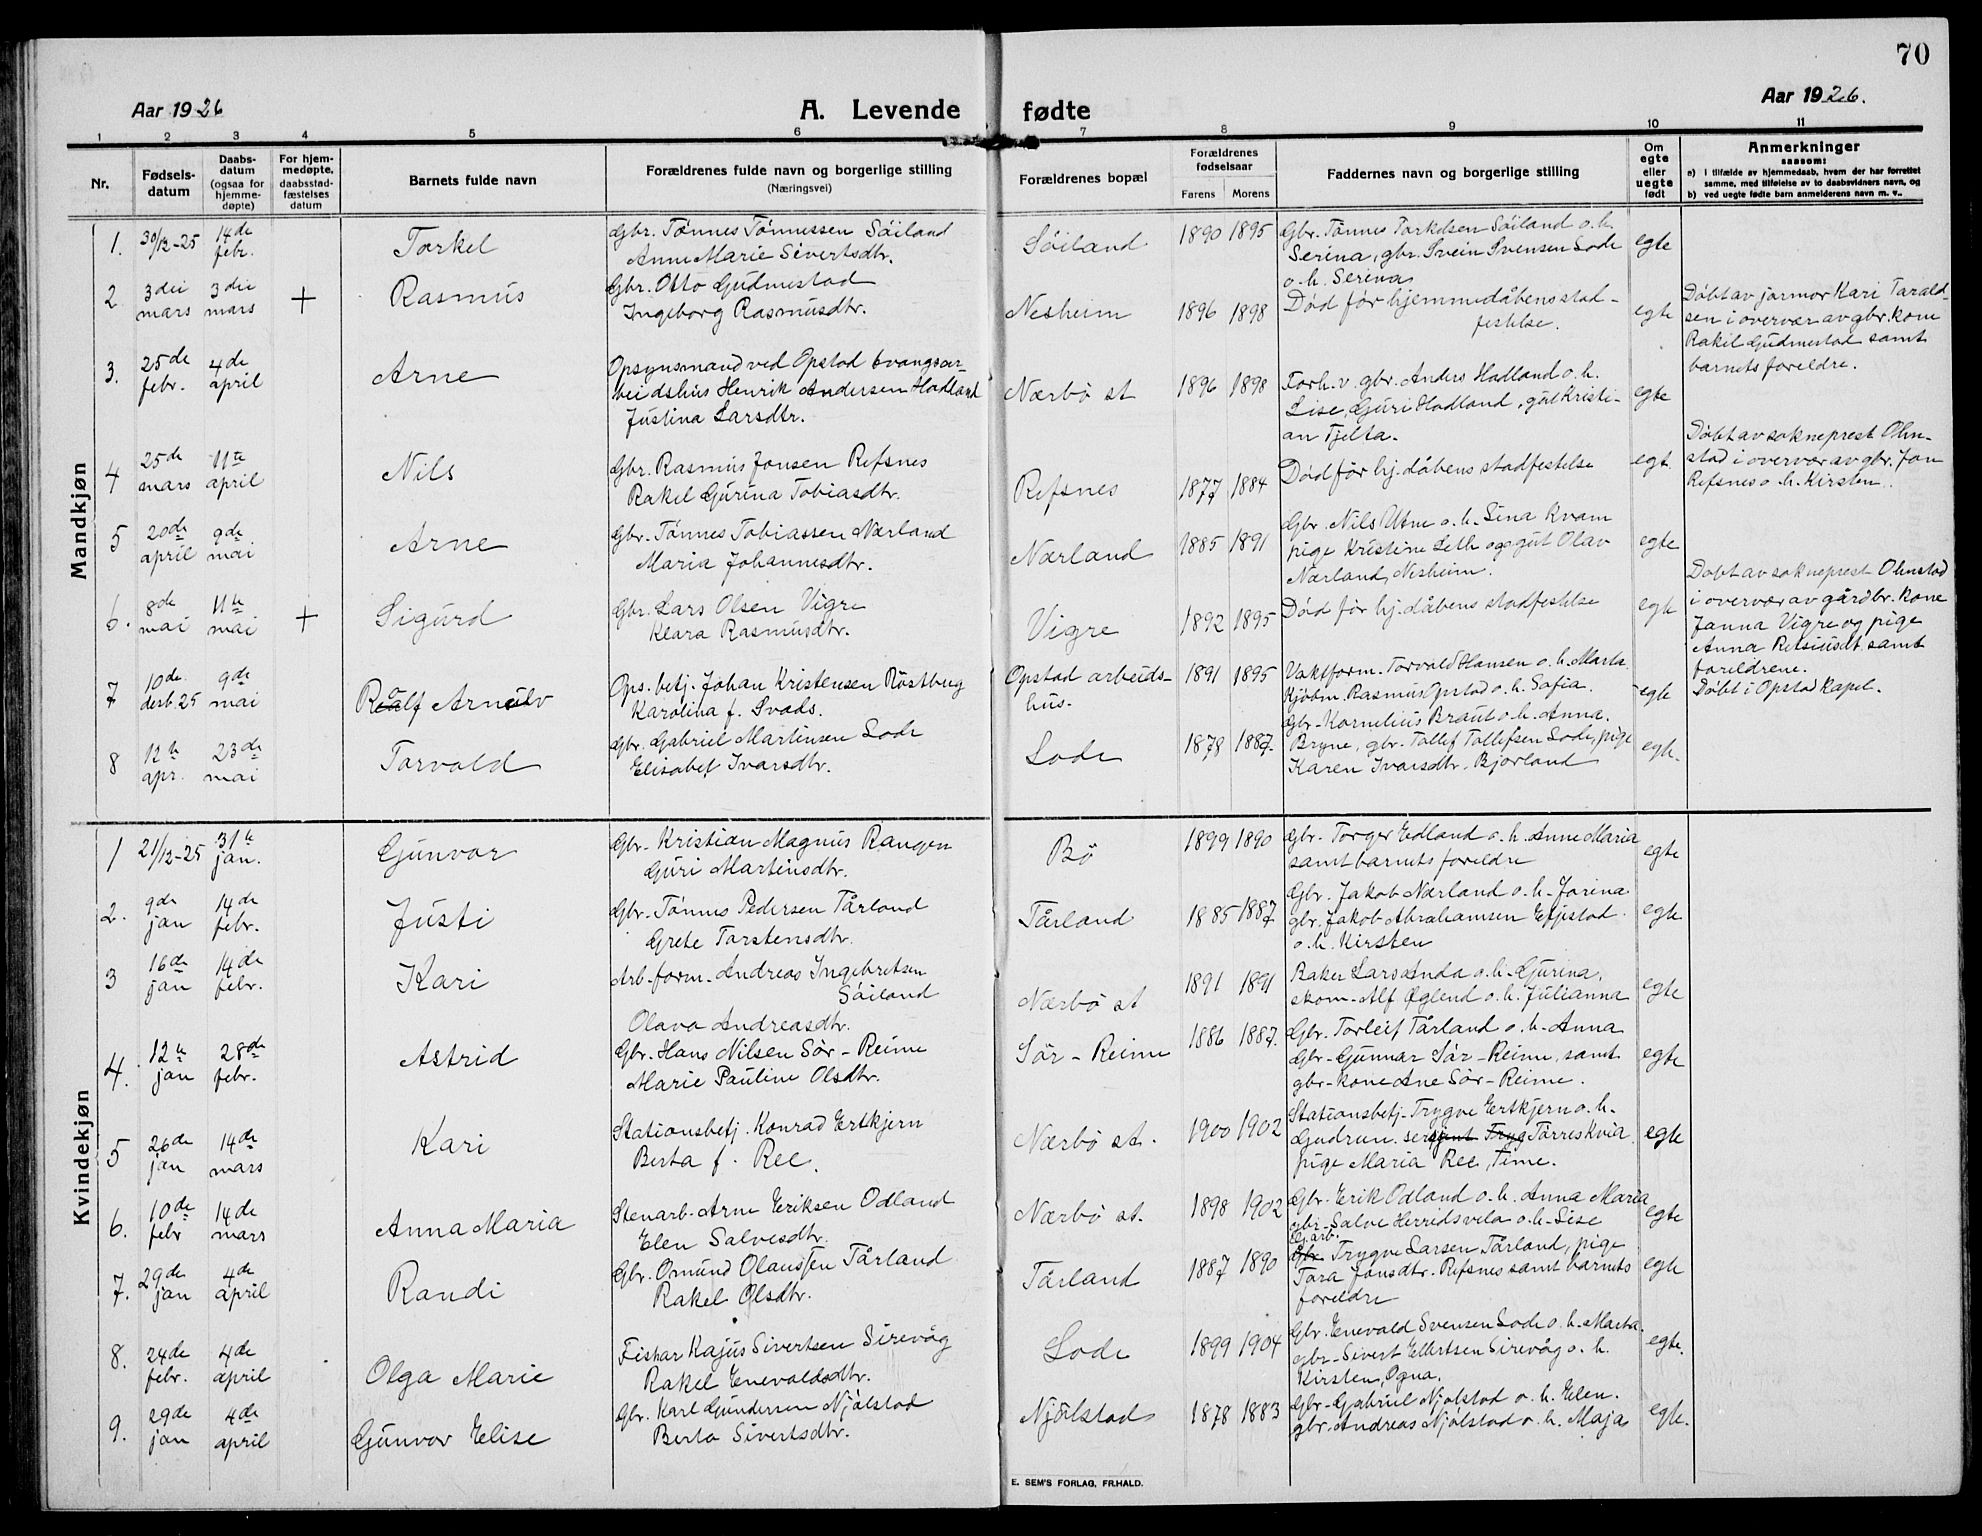 70
Aar 1926
A. Levende fødte
Aar 1926.
1 2 3 4 5 6 7 8 9 10 11
Nr.
Fødsels-
datum
Daabs-
datum
(ogsaa for
hjemme-
døpte)
For hjem-
medøpte,
daabsstad-
fæstelses
datum
Barnets fulde navn
Forældrenes fulde navn og borgerlige stilling
(Næringsvei)
Forældrenes bopæl
Forældrenes
fødselsaar
Farens Morens
Faddernes navn og borgerlige stilling
Om
egte
eller
uegte
født
Anmerkninger
saasom:
a) I tilfælde av hjemmedaab, hvem der har forrettet
samme, med tilføielse av to daabsvidners navn, og
b) ved uegte fødte barn anmelderens navn m. v..
Mandkjøn
1. 30/12-25 14de febr. Torkel
Gbr. Tønnes Tønnessen Söiland
Anne Marie Sivertsdtr.
Söiland 1890 1895
Gbr. Tønnes Torkelsen Söiland o. h.
Serina, gbr. Svein Svensen Lode
o. h. Serina
egte
2 3die mars 3die mars + Rasmus
Gbr. Otto Gudmestad
Ingeborg Rasmusdtr.
Nesheim 1896 1898
Död før hjemmedåbens stad-
festelse.
egte
Döbt av jormor Kari Tarald-
sen i overvær av gbr. kone
Rakil Gudmestad samt
barnets foreldre.
3. 25de febr. 4de april Arne
Opsynsmand ved Opstad tvangsar-
beidshus Henrik Andersen Hadland
Justina Larsdtr.
Nærbö st 1896 1898
Forh. v. gbr. Anders Hadland o. h.
Lise, Guri Hadland, gut Kristi-
an Tjelta.
egte
4 25de mars 11te april Nils
Gbr. Rasmus Jonsen Refsnes
Rakel Gurina Tobiasdtr.
Refsnes 1877 1884
Död för hj. dåbens stadfestelse
egt.
Döbt av sokneprest Olm-
stad i overvær av gbr. Jon
Refsnes o. h. Kirsten.
5 20de april 9de mai Arne
Gbr. Tönnes Tobiassen Nærland
Maria Johannesdtr.
Nærland 1885 1891
Gbr. Nils Utne o. h. Sina Kvam
pige Kristine Leth og gut Olav
Nærland, Nesheim.
egte
6. 8de mai 11te mai + Sigurd
Gbr. Lars Olsen Vigre
Klara Rasmusdtr.
Vigre 1892 1895
Död för hj. dåbens stadfestelse
egte
Döbt av sokneprest Olmstad
i overvær av gårdbr. kone
Janna Vigre og pige
Anna samt
foreldrene.
7 10de desb. 25 9de mai Rolf Arnulv
Ops. betj. Johan Kristensen Röstberg
Karolina f. Svads.
Opstad arbeids-
hus. 1891 1895
Vaktform. Torvald Hansen o. h. Marta
Kjöbm. Rasmus Opstad o. h. Safia.
egte
Döbt i Opstad kapel.
8 12te apr. 23de mai Torvald
Gbr. Gabriel Martinsen Lode
Elisabet Ivarsdtr.
Lode 1878 1887.
Gbr. Kornelius Braut o. h. Anna.
Bryne, gbr. Tollef Tollefsen Lode, pige
Karen Ivarsdtr. Bjorland
egte.
Kvindekjøn
1 21/12-25 31te jan. Gunvor
Gbr. Kristian Magnus Rangen
Guri Martinsdtr.
Bö 1899 1890
Gbr. Torger Edland o. h. Anne Maria
samt barnets foreldre
egte
2. 9de jan 14de febr. Justi
Gbr. Tönnes Pedersen Tårland
Grete Torstensdtr.
Tårland 1885 1887.
Gbr. Jakob Nærland o. h. Jorina
gbr. Jakob Abrahamsen Effestad
o. h. Kirsten
egte
3 16de jan 14de febr. Kari
Arb-form. Andreas Ingebretsen
Söiland
Olava Andreasdtr.
Nærbö st 1891 1891
Baker Lars Anda o. h. Gurina,
skom. Alf Øglend o. h. Julianna
egte
4. 12te jan 28de febr. Astrid
Gbr. Hans Nilsen Sör-Reime
Marie Pauline Olsdtr.
Sör-Reime 1886 1887.
Gbr. Torleif Tårland o. h. Anna
Gbr. Gunnar Sör-Reime, samt
gbr-kone Ane Sör-Reime.
egte
5 26de jan 14de mars Kari
Stationsbetj. Konrad Ertkjern
Berta f. Ree.
Nærbö st. 1900 1902
Stationsbetj. Trygve Ertkjern o. h.
Gudrun. sersjent Tryg Tørres Kvia
pige Maria Ree, Time.
egte
6. 10de febr 14de mars Anna Maria
Stenarb. Arne Eriksen Odland
Elen Salvesdtr.
Nærbö st. 1898 1902
Gbr. Erik Odland o. h. Anna Maria
gbr. Salve Herridsvela o. h. Lise
egte
7. 29de jan 4de april Randi
Gbr. Omund Olaussen Tårland
Rakel Olsdtr.
Tårland 1887 1890
Gbr. Trygve Larsen Tårland, pige
Tora Jonsdtr. Refsnes samt barnets
foreldre
egte
8. 24de febr. 4de april Olga Marie
Fisker Kajus Sivertsen Sirevåg
Rakel Enevaldsdtr.
Lode 1899 1904
Gbr. Enevald Svensen Lode o. h. Marta.
gbr. Sivert Ellertsen Sirevåg o. h.
Kirsten, Ogna.
egte.
9. 29de jan 4de april Gunvor Elise
Gbr. Karl Gundersen Njölstad
Berta Sivertsdtr.
Njölstad 1878 1883
Gbr. Gabriel Njolstad o. h. Elen.
gbr. Andreas Njölstad o. h. Maja
egte.
E. SEM'S FORLAG, FR.HALD.